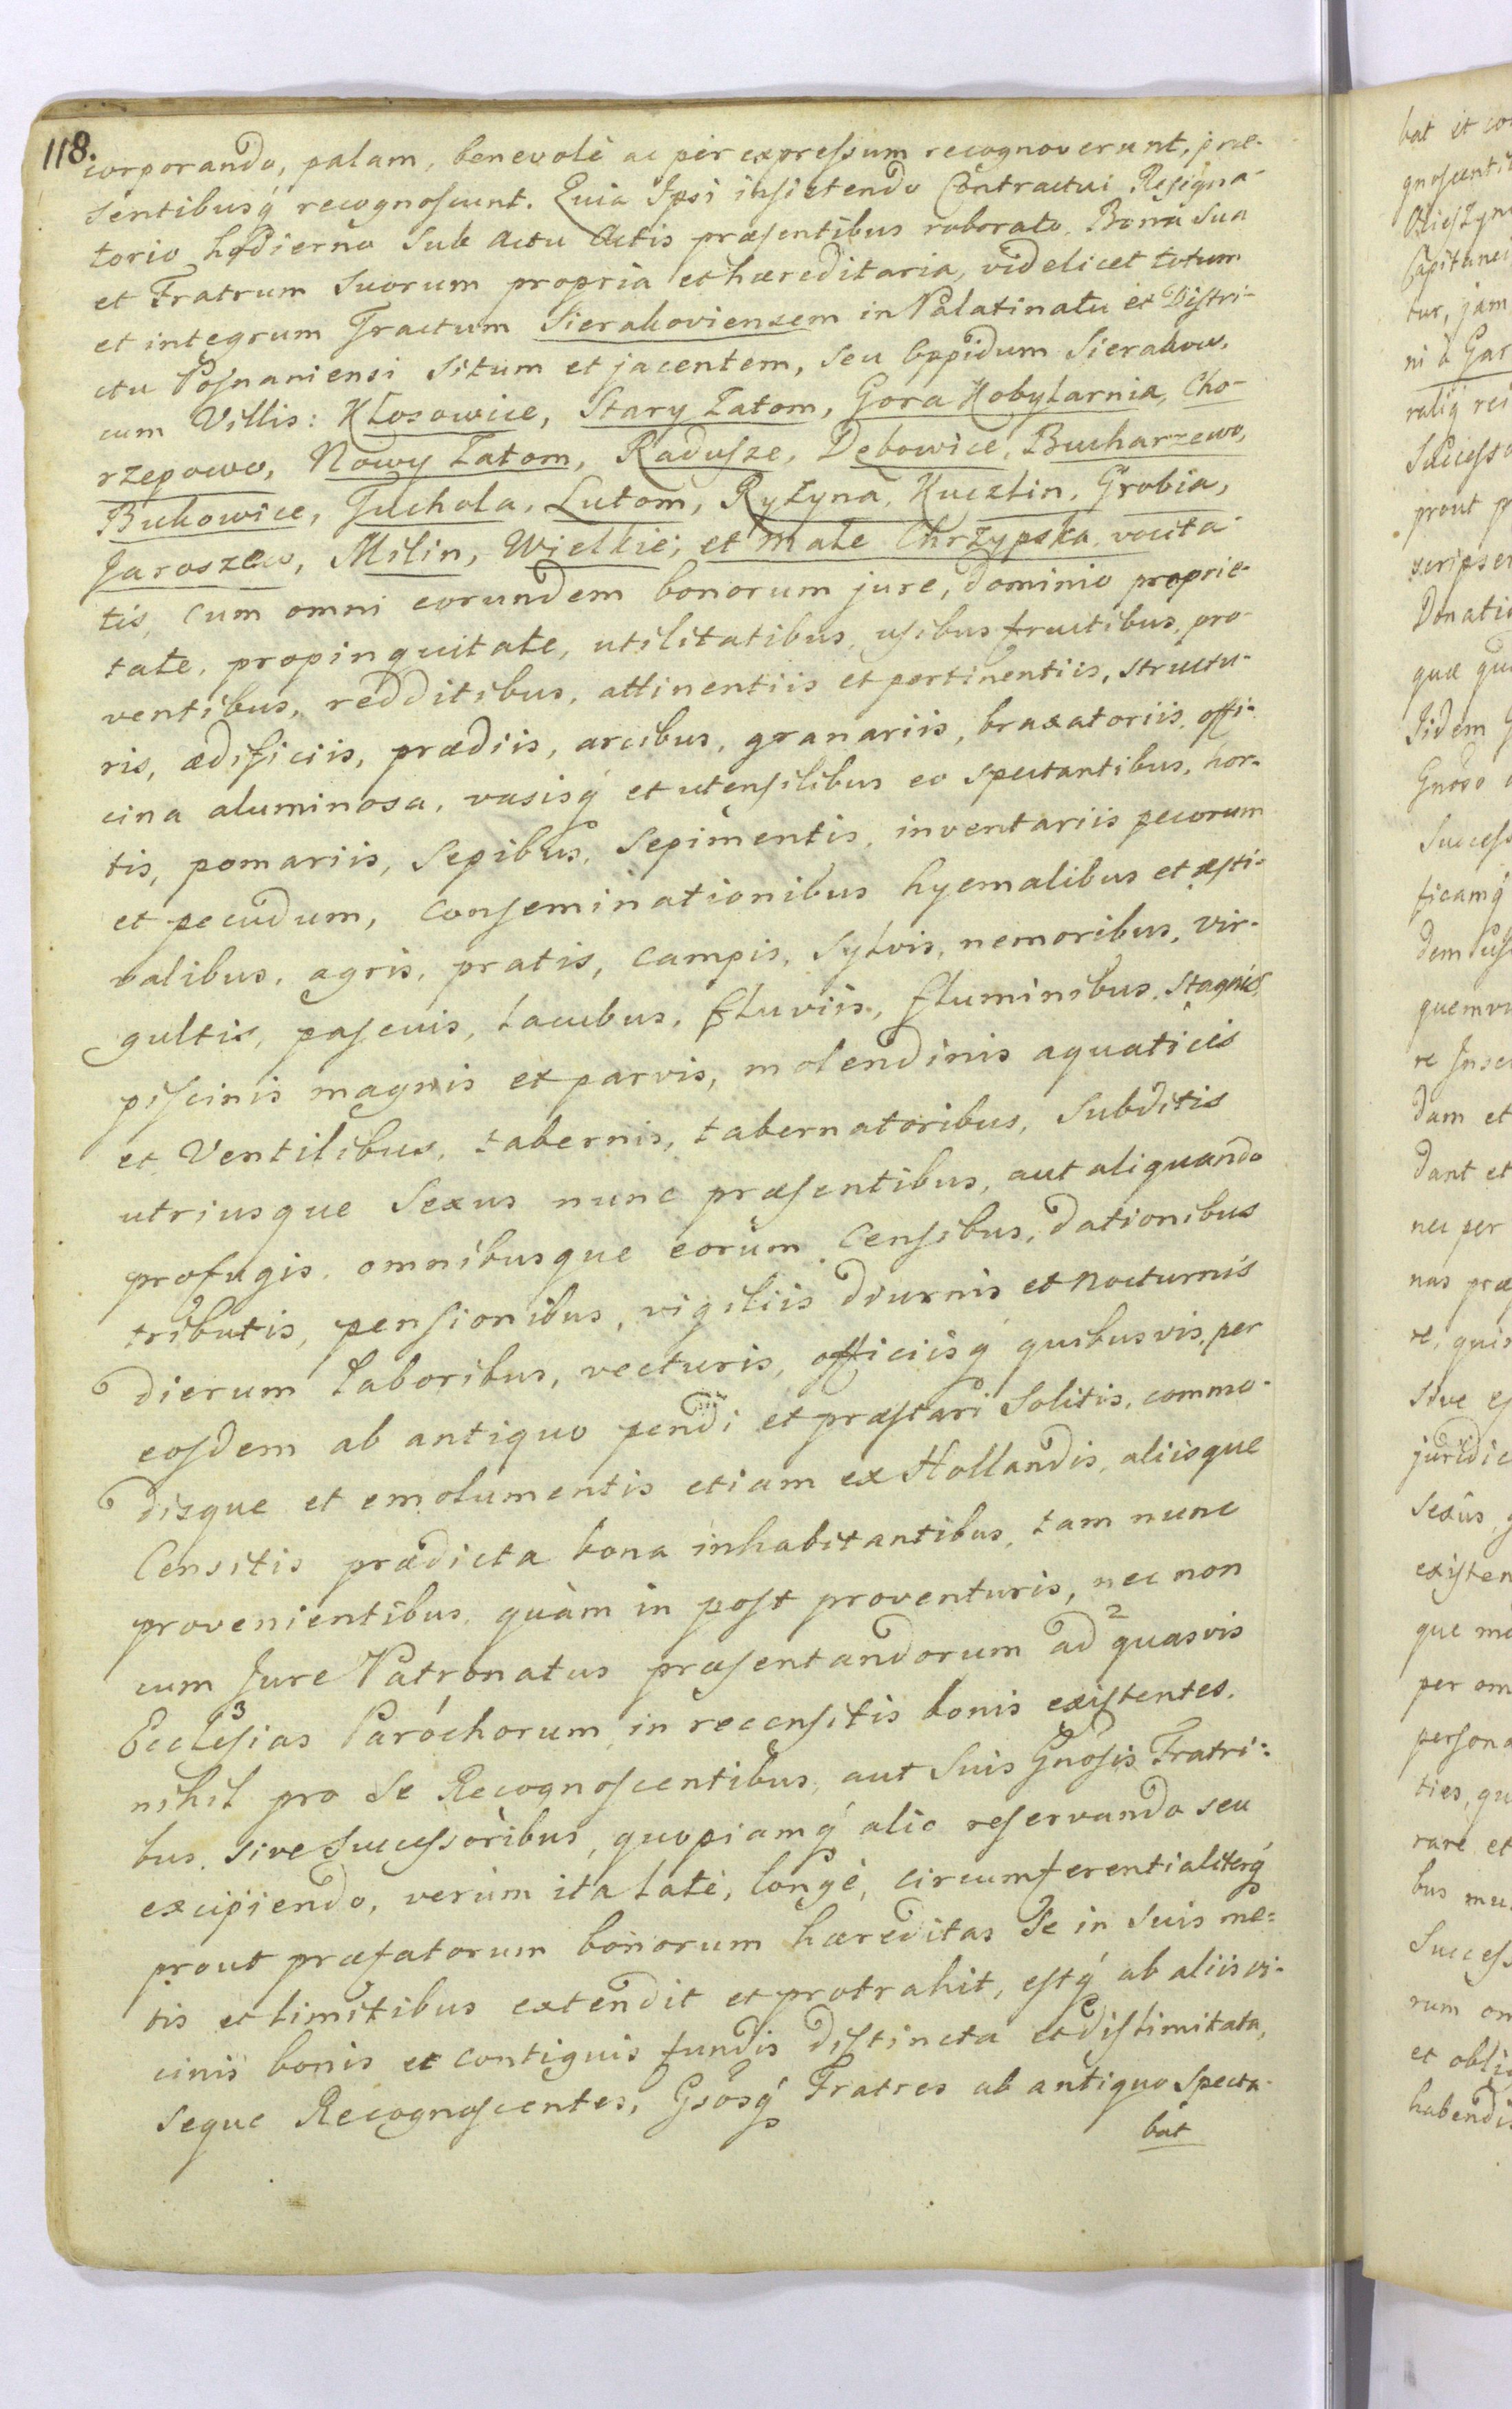 118.
corporando, palam, benevolè ac per expreſsum recognoverunt, præ-
sentibusq́ recognoſcunt. Quia Ipsi inſiſtendo Contractui Reſigna-
torio hodierno Sub Actu Actis præſentibus roborato. Bona Sua
et Fratrum Suorum propria et hæreditaria, videlicet totum
et integrum Tractum Sierakoviensem in Palatinatu et Diſtri-
ctu Poſnaniensi Situm et jacentem, seu Oppidum Sierakow.
cum Villis: Kłosowice, Stary Zatom, Gora Kobylarnia, Cho-
rzepowo, Nowy Zatom, Raduſze, Debowice, Bucharzewo,
Bukowice, Tuchola, Lutom, Ryżyna, Kuczlin, Grobia,
Jaroszew, Milin, Wielkie, et Małe Chrzypska vocita-
tis, cum omni eorundem bonorum jure, dominio proprie-
tate, propinquitate, utilitatibus, uſibus fructibus, pro-
ventibus, redditibus, attinentiis et pertinentiis, structu-
ris, ædificiis, prædiis, arcibus, granariis, braxatoriis, offi-
cina aluminosa, vasisq́ et utenſilibus eo spectantibus, hor-
tis, pomariis, Sepibus, Sepimentis, inventariis pecorum
et pecudum, Conſeminationibus hyemalibus et æſti-
valibus, agris, pratis, Campis, Sylvis, nemoribus, vir-
gultis, paſcuis, lacubus, fluviis, fluminibus, Stagnis,
piſcinis magnis et parvis, molendinis aquaticis
et Ventilibus, tabernis, tabernatoribus, Subditis
utriusque Sexus nunc præſentibus, aut aliquando
profugis, omnibusque eorum Cenſibus, dationibus
tributis, penſionibus, vigiliis diurnis et nocturnis
dierum laboribus, vecturis, officiisq́ quibusvis, per
eoſdem ab antiquo pendi et præſtari Solitis, commo-
disque et emolumentis etiam ex Hollandis, aliisque
Censitis prædicta bona inhabitantibus, tam nunc
provenientibus, quàm in poſt proventuris, nec non
cum Jure Patronatus præſentandorum ad 2 quasvis
Eccleſias 3 Parochorum, in recenſitis bonis exiſtentes.
nihil pro Se Recognoſcentibus, aut Suis Gnoſis Fratri-
bus, sive Succeſsoribus, quopiamq́ alio reſervando seu
excipiendo, verùm ita latè, longè, circumferentialiterq́
prout præfatorum bonorum hæreditas Se in Suis me-
tis et limitibus extendit et protrahit, eſtq́ ab aliis vi-
cinis bonis et contiguis fundis diſtincta et diſlimitata,
Seque Recognoſcentes, Gsosq́ Fratres ab antiquo Specta-
bat